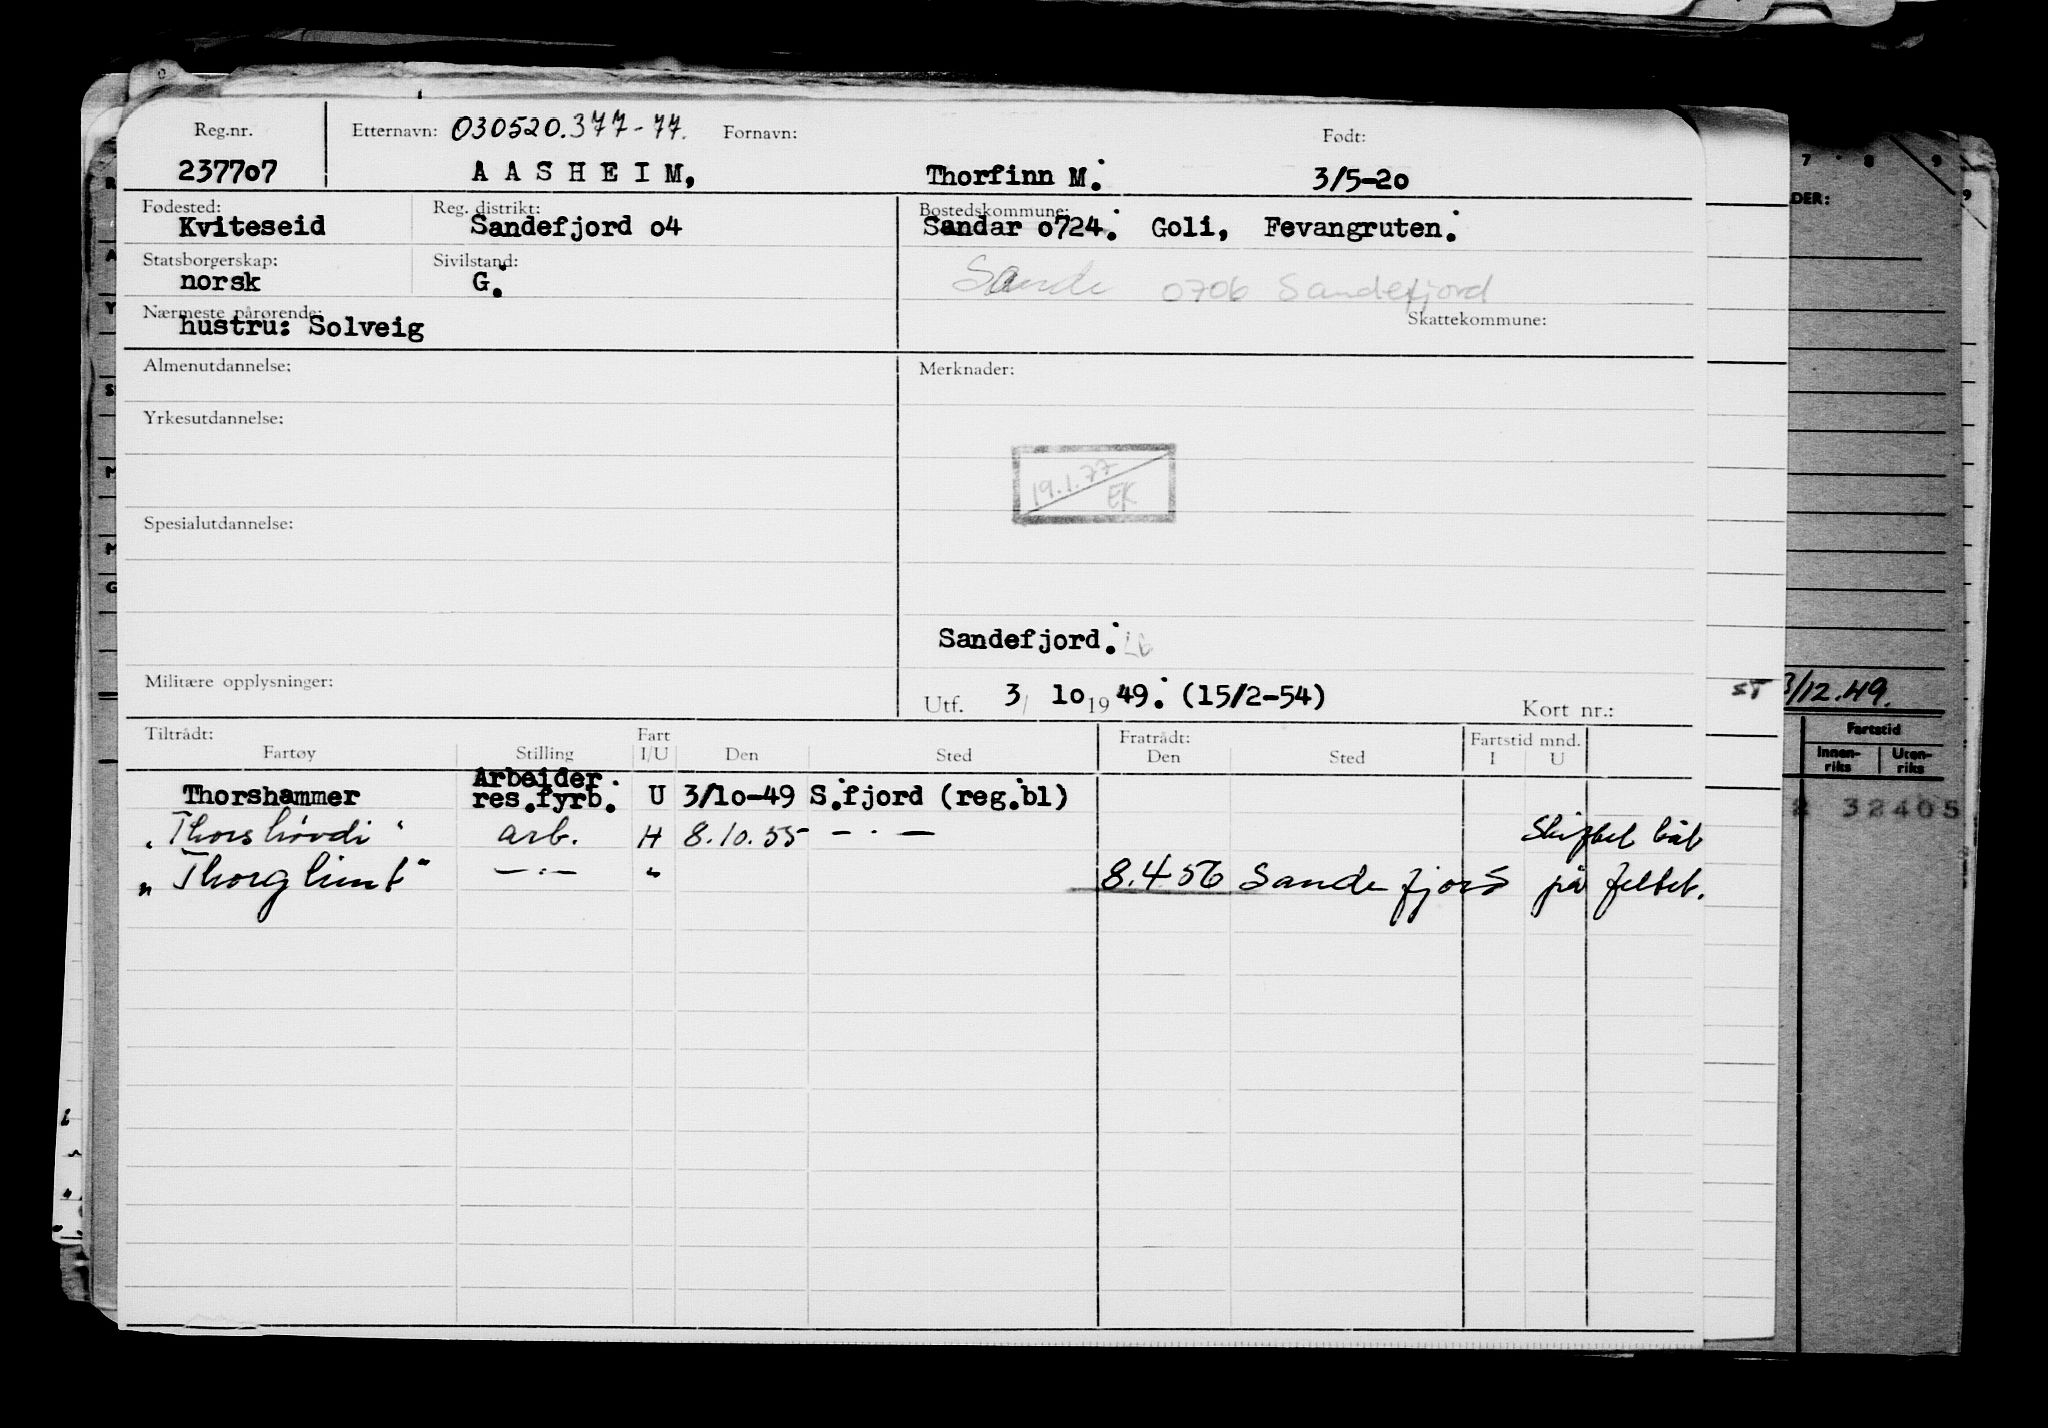 Reg.nr. Etternavn: 030520.377-77. Fornavn: Født:
237707 AASHEIM, Thorfinn M. 3/5-20
Fødested: Reg. distrikt: Bostedskommune:
Kviteseid Sandefjord o4 Sandar o724. Goli, Fevangruten.
Statsborgerskap: Sivilstand:
norsk G. Sande 0706 Sandefjord
Nærmeste pårørende: Skattekommune:
hustru: Solveig
Almenutdannelse: Merknader:
Yrkesutdannelse:
19.1.77
EK
Spesialutdannelse:
Sandefjord.
Militære opplysninger:
Utf. 3/ 1o 19 49. (15/2-54) Kort nr.:
Tiltrådt: Fart Fratrådt: Fartstid mnd.
Fartøy Stilling I/U Den Sted Den Sted I U
Arbeider.
Thorshammer res.fyrb. U 3/1o-49 S.fjord (reg.bl)
"Thorshövdi" arb. H 8.10.55 -.- Skiftet båt
"Thorglimt" -.- " 8.4 56 Sandefjord på feltet.
7 8 9
DER:
3/12.49.
Fartstid
Innen-riks Uten-riks
2 32405